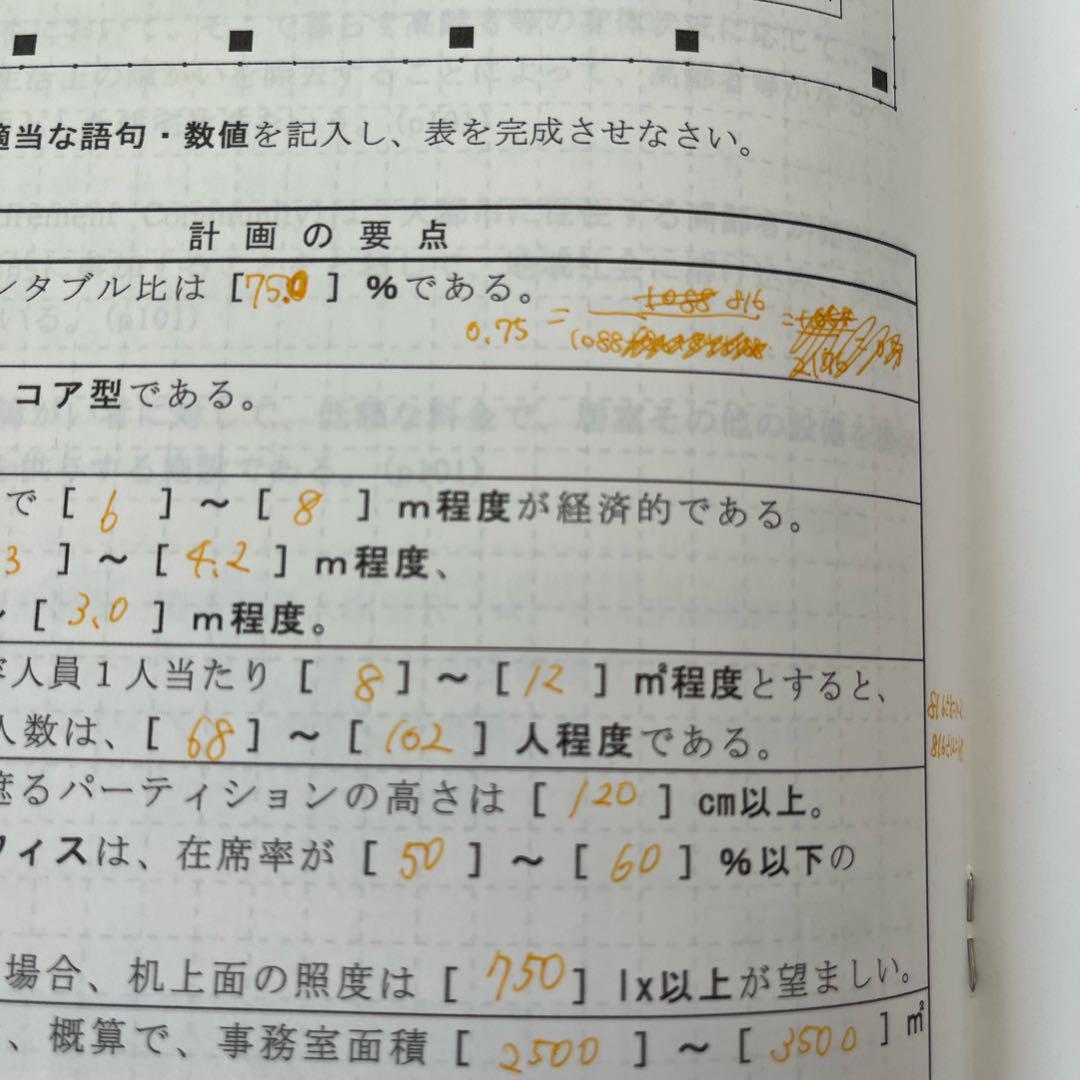 適当な語句・数値を記入し、表を完成させなさい。
計画の要点
ンタブル比は [75.0] %である。
0.75 = 816
1088
コア型である。
で [ 6 ] ～ [ 8 ] m程度が経済的である。
3 ] ～ [ 4.2 ] m程度、
[ 3.0 ] m程度。
人員1人当たり [ 8 ] ～ [ 12 ] ㎡程度とすると、
人数は、[ 68 ] ～ [ 102 ] 人程度である。
遮るパーティションの高さは [ 120 ] cm以上。
フィスは、在席率が [ 50 ] ～ [ 60 ] %以下の
場合、机上面の照度は [ 750 ] lx以上が望ましい。
、概算で、事務室面積 [ 2500 ] ～ [ 3500 ] ㎡